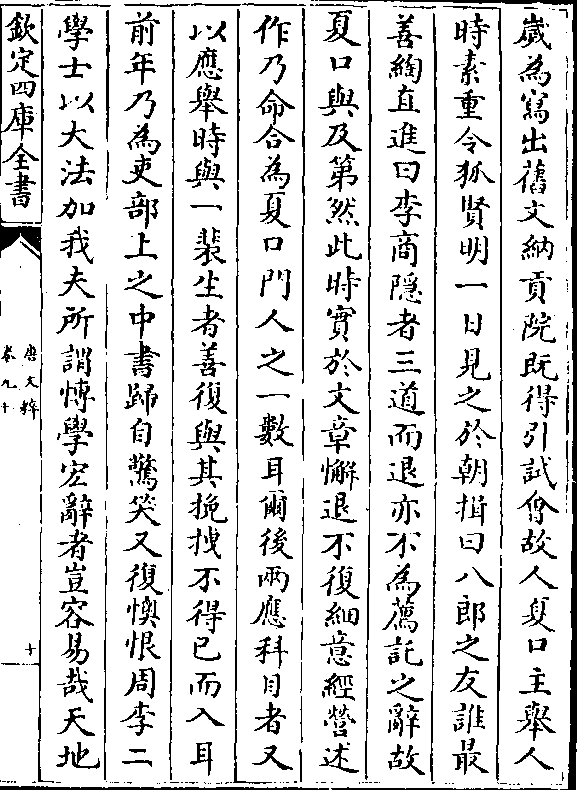 歲為寫出舊文納貢院既得引試㑹故人夏口主舉人
時素重令狐賢明一日見之於朝揖曰八郎之友誰最
善綯直進曰李商隠者三道而退亦不為薦託之辭故
夏口與及第然此時實於文章懈退不復細意經營述
作乃命合為夏口門人之一數耳爾後兩應科目者又
以應舉時與一裴生者善復與其挽拽不得已而入耳
前年乃為吏部上之中書歸自驚笑又復懊恨周李二
學士以大法加我夫所謂愽學宏辭者豈容易哉天地
欽定四庫全書
唐文粹
卷九十
十